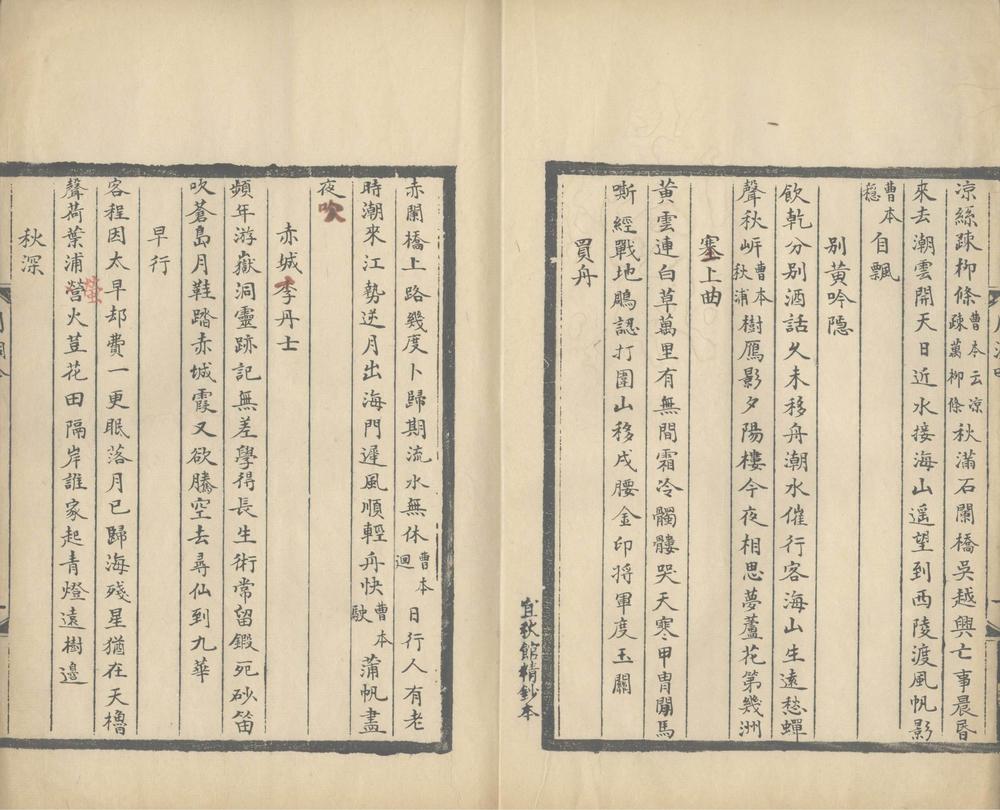 凉絲疎栁條曹本云凉疎萬栁條秋滿石闌橋吳越興亡事晨昏
來去潮雲開天日近水接海山遥望到西陵渡風帆影
曹本穏自飄
别黃吟隱
飲乾分别酒話久未移舟潮水催行客海山生遠愁蟬
聲秋㟁曹本秋浦樹鴈影夕陽樓今夜相思夢蘆花第幾洲
塞上曲
黃雲連白草萬里有無間霜冷髑髏哭天寒甲胄閒馬
嘶經戰地鵰認打圍山移戍腰金印将軍度玉關
買舟
宜秋館精鈔本
赤闌橋上路幾度卜歸期流水無休曹本迴日行人有老
時潮來江勢逆月出海門遲風順輕舟快曹本駛蒲帆盡
夜吹
赤城李丹士
頻年游嶽洞靈跡記無差學得長生術常留鍛死砂笛
吹蒼島月鞋踏赤城霞又欲騰空去尋仙到九華
早行
客程因太早却費一更眠落月已歸海殘星猶在天櫓
聲荷葉浦營螢火荳花田隔岸誰家起青燈遠樹邊
秋深